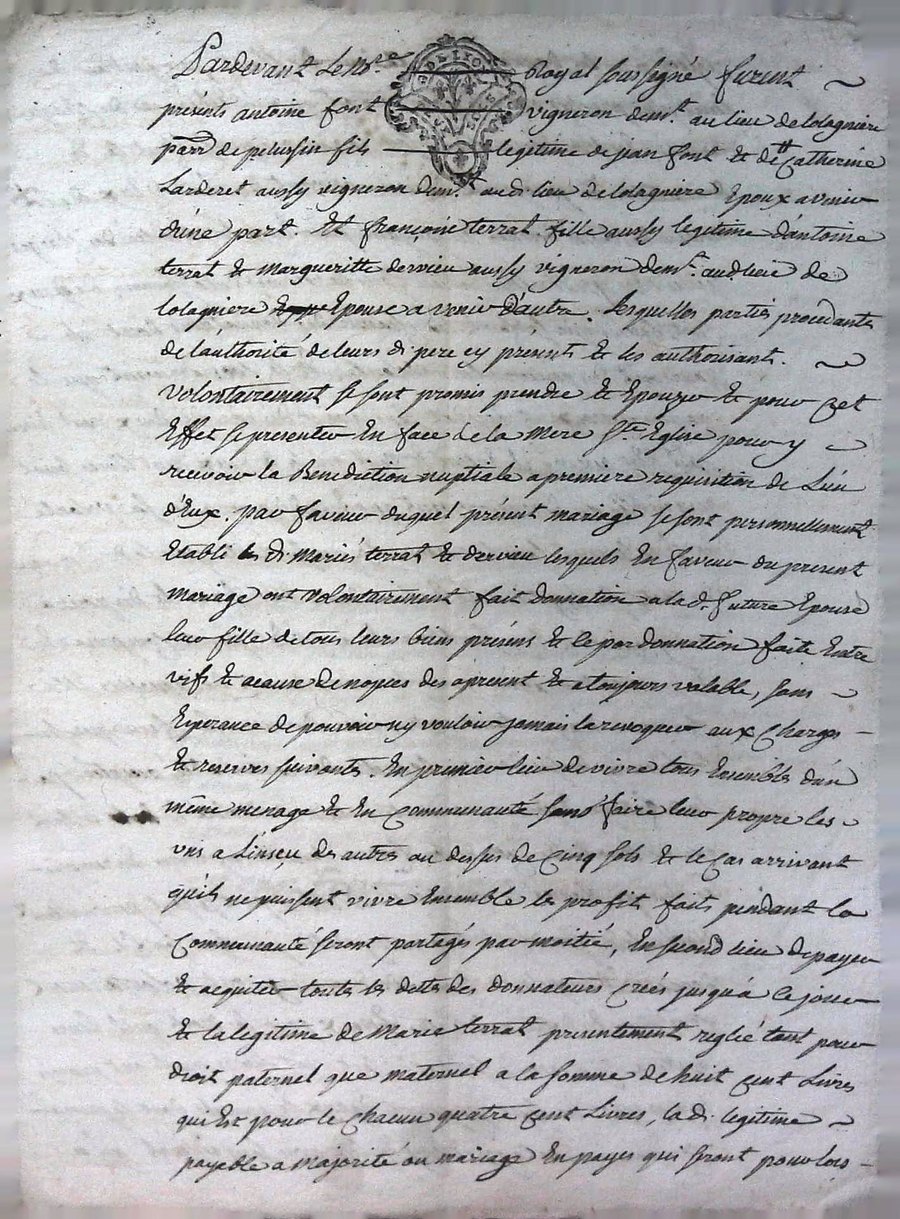 Pardevant Le No.re Royal soussigné furent
présents antoine font vigneron dem.t au lieu de lolagniere
parr de pelussin fils legitime de jean font & de Catherine
Larderet aussy vigneron dem.t audi lieu de lolagniere Epoux a venir
d'une part. Et françoise terrat fille aussy legitime d'antoine
terrat & margueritte dervieu aussy vigneron dem.t aud. lieu de
lolagniere Epouse a venir D'autre. Lesquelles parties procedantes
de l'authorité de leurs di pere cy présents & les authorisant.
Volontairement se sont promis prendre & Epouzer & pour cet
Effet se presenter En face de la mere S.te Eglise pour y
recevoir la Benediction nuptiale a premiere requisition de L'un
d'Eux. par faveur duquel présent mariage se sont personnellement
Etabli les di Mariés terrat & dervieu lesquels En faveur du present
mariage ont Volontairement fait donnation a la d. future Epouse
leur fille de tous leurs biens présens & ce par donnation faite Entre
vifs & acause de nopces des apresent & a toujours valable, sans
Esperance de pouvoir ny vouloir jamais la revoquer aux Charges
& reserves suivantes. En premier lieu de vivre tous Ensembles d'un
même menage & En Communauté sans faire leur propre les
uns a L'insçu des autres au dessus de Cinq sols & le Cas arrivant
qu'ils ne puissent vivre Ensemble les profit faits pendant la
Communauté seront partagés par moitié, En second lieu de payer
& aquiter toutes les dettes des donnateurs Créés jusqu'a ce jour
& la legitime de Marie terrat presentement reglié tant pour
droit paternel que maternel a la somme de huit cent Livres
qui Est pour le Chacun quatre cent Livres, la d. legitime
payable a Majorité ou mariage En payes qui seront pour lors